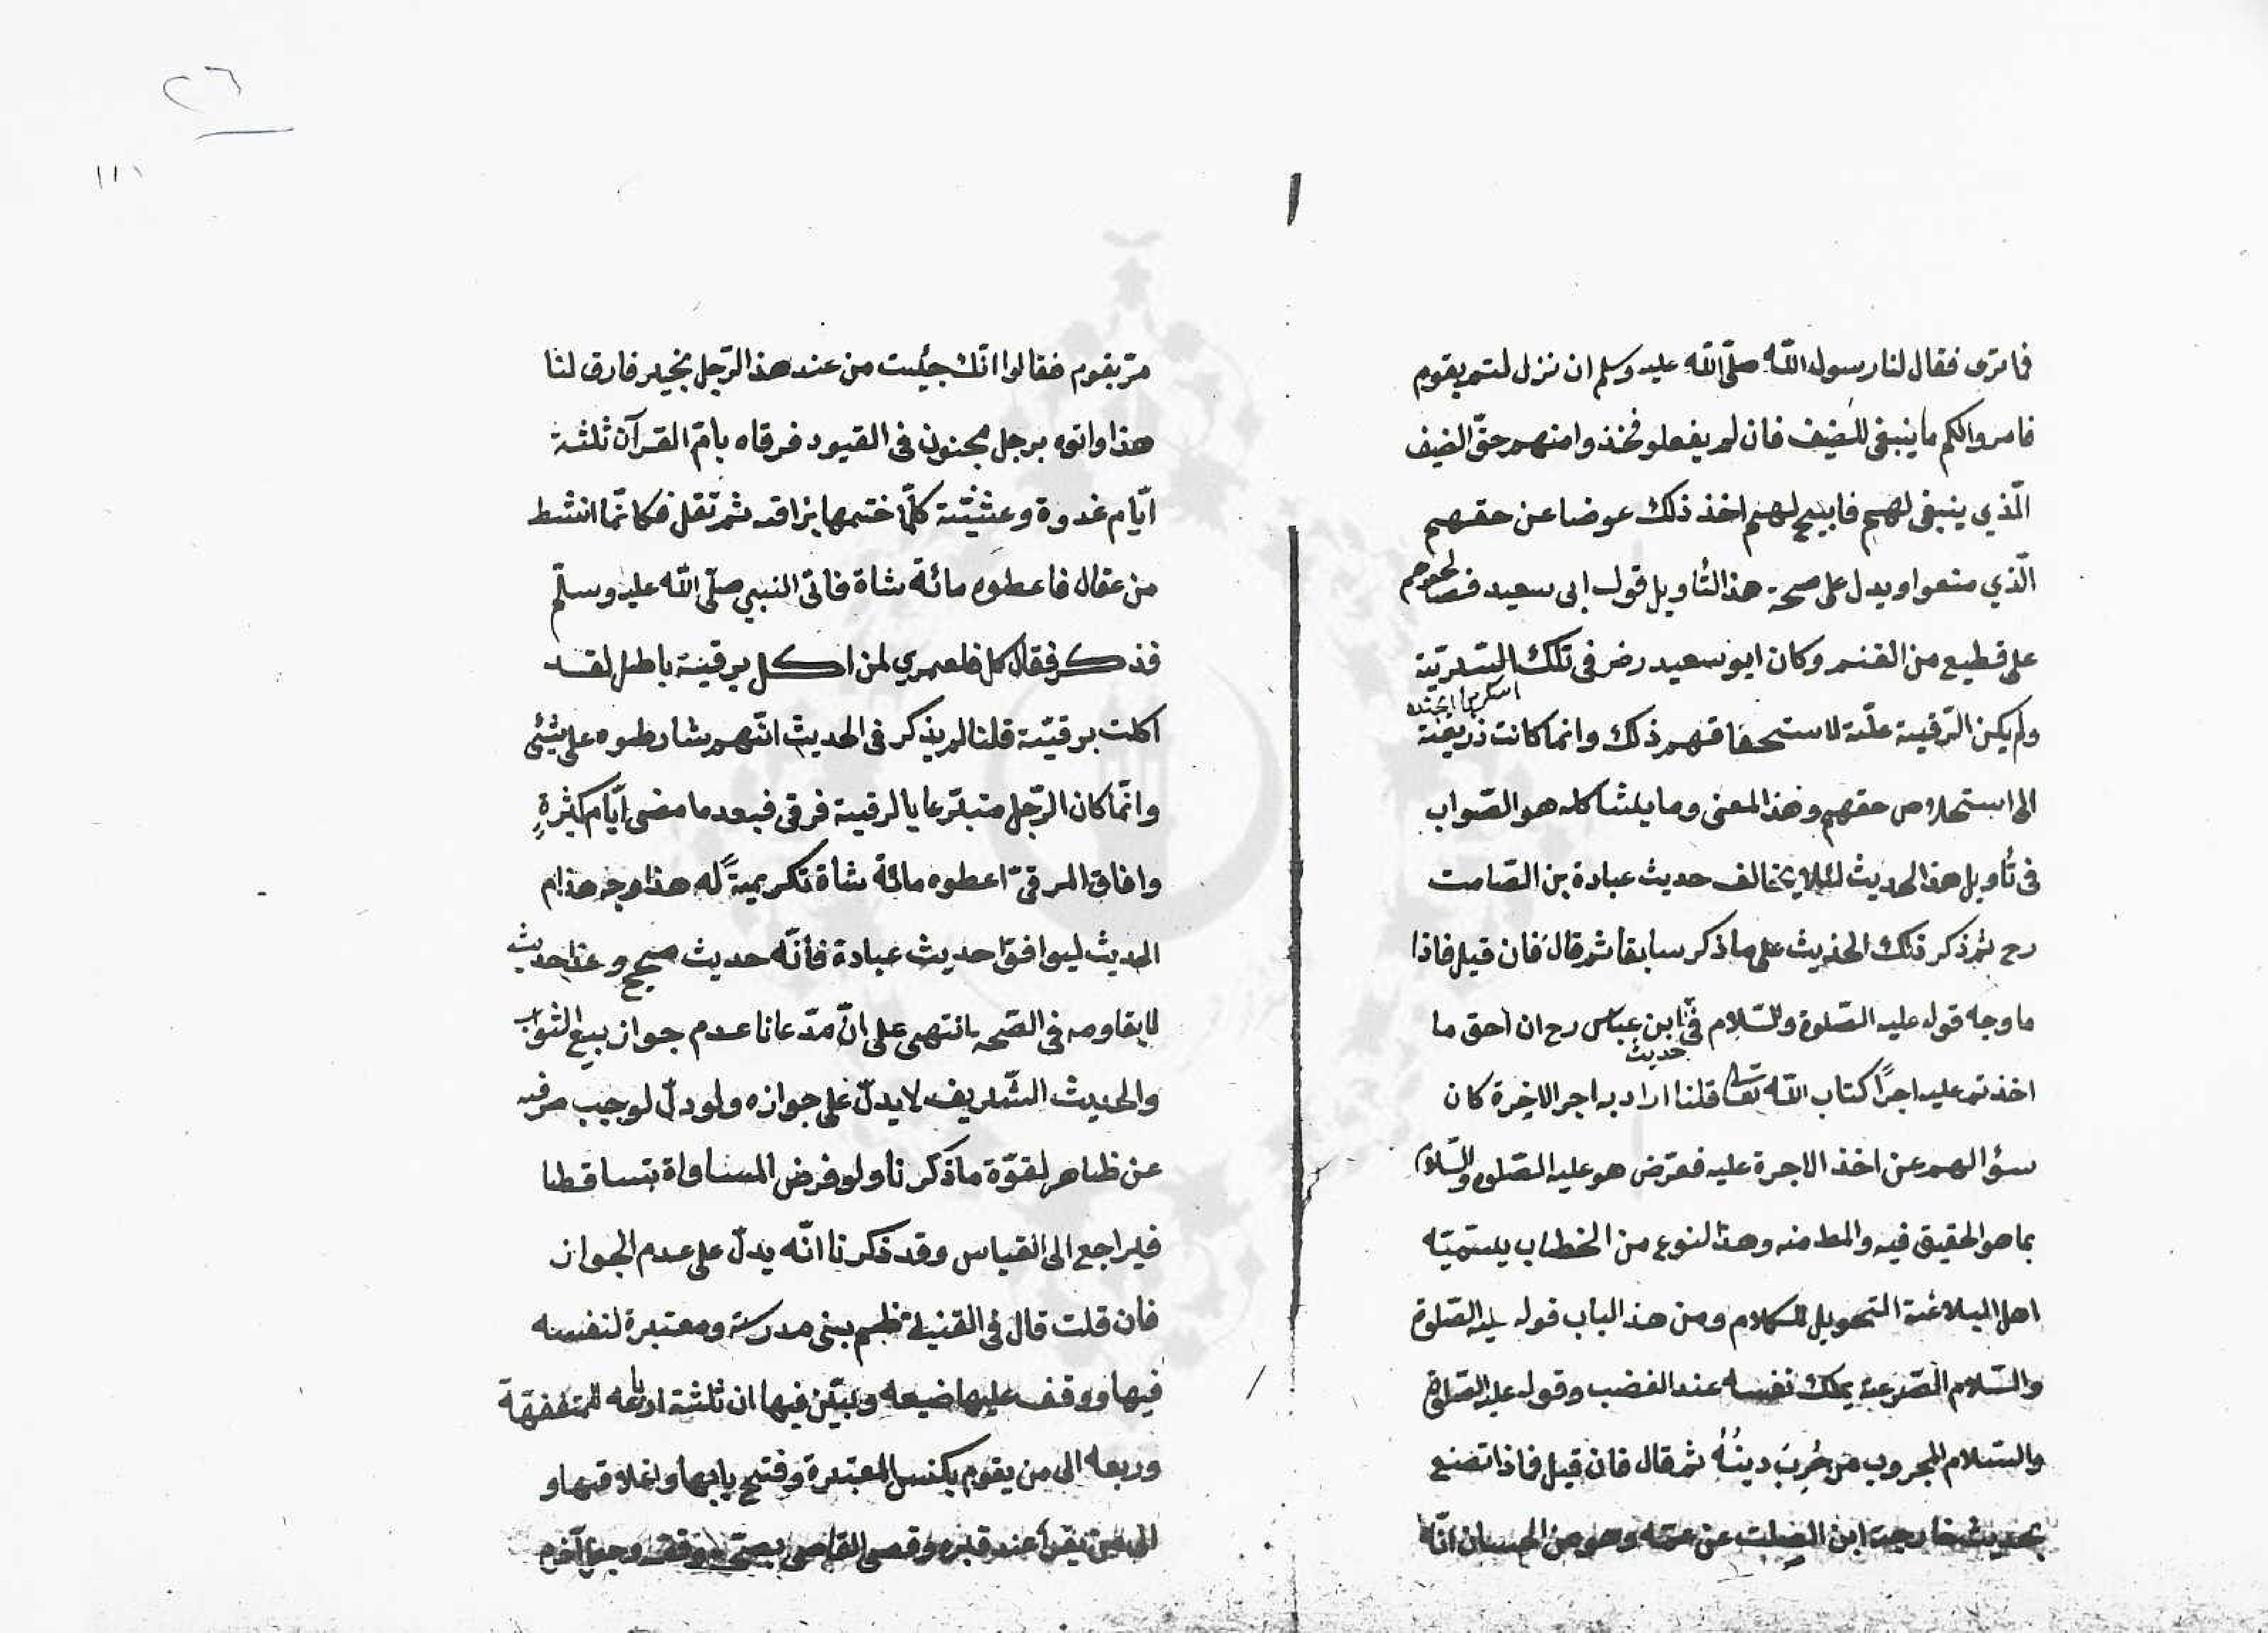 ٢٦
١١١
فما ترى فقال لنا رسول اللّه صلّى اللّه عليه وسلم ان نزل لتم بقوم
فامروا لكم ما ينبغى للضيف فان لم يفعلو فخذوا منهم حقّ الضيف
الّذي ينبغى لهم فابيح لهم اخذ ذلك عوضا عن حقهم
الّذي منعوا ويدل على صحة هذ التأويل قول ابى سعيد فصالحوهم
على قطيع من الغنم وكان ابو سعيد رضر فى تلك السّريّة
ولم يكن الرّقية علّة لاستحقاقهم ذلك وانما كانت ذريعة
الى استخلاص حقهم وهذ المعنى وما يشاكله هو الصّواب
فى تأويل هذ الحديث لئلا يخالف حديث عبادة بن الصّامت
رح ثم ذكر ذلك الحديث على ما ذكر سابقا ثم قال فان قيل فاذا
ما وجه قوله عليه الصّلوة والسّلام فى حديث ابن عبّاس رح ان احق ما
اخذتم عليه اجرًا كتاب اللّه تعالى قلنا اراد به اجر الاخرة كان
سؤالهم عن اخذ الاجرة عليه فعرّض هو عليه الصّلوة والسّلام
بما هو الحقيق فيه والمط منه وهذ النوع من الخطاب يسمّيه
اهل البلاغة التحويل للكلام ومن هذ الباب قوله عليه الصّلوة
والسّلام الصّرعة يملك نفسه عند الغضب وقوله عليه الصّلوة
والسّلام المحروب من حُرِبَ دينُهُ ثم قال فان قيل فاذا تصنع
بحديث خارجة ابن الصلت عن عمّه وهو من الحسان انّه
مرّ بقوم فقالوا انّك جئيت من عند هذ الرّجل بخير فارق لنا
هذا واتوه برجل مجنون فى القيود فرقاه بامّ القرآن ثلثة
ايّام غدوة وعشيّة كلّما ختمها بزاقه ثم تفل فكانّما انشط
من عقال فاعطوه مائة شاة فاتى النبي صلّى اللّه عليه وسلّم
فذكر فقال كل فلعمري لمن اكل برقية باطل لقد
اكلت برقيّة قلنا لم يذكر فى الحديث انّهم شارطوه على شئى
وانّما كان الرّجل متبرّعا بالرقية فرقى فبعد ما مضى ايّام كثرةٍ
وافاق المرقىّ اعطوه مائة شاة تكريمةً له هذا وجه هذا م
الحديث ليوافق حديث عبادة فأنّه حديث صحيح وهذا حديث
لا يقاومه فى الصّحه انتهى على انّ مدّعانا عدم جواز بيع الثّواب
والحديث الشّريف لا يدلّ على جوازه ولو دلّ لوجب صرفه
عن ظاهره لقوّة ما ذكرنا ولو فرض المساواة بتساقطا
فيراجع الى القياس وقد ذكرنا انّه يدلّ على عدم الجواز
فان قلت قال فى القنية ظهم بنى مدرسة ومعتبرة لنفسه
فيها ووقف عليها ضيعه وبيّن فيها ان ثلثة ارباعه للمتفقهة
وربعه الى من يقوم بكنس المعتبرة وفتح بابها واغلاقها و
الى من يقرأ عند قبره وقضى القاضى بصحّة وقفه وجعل آخره